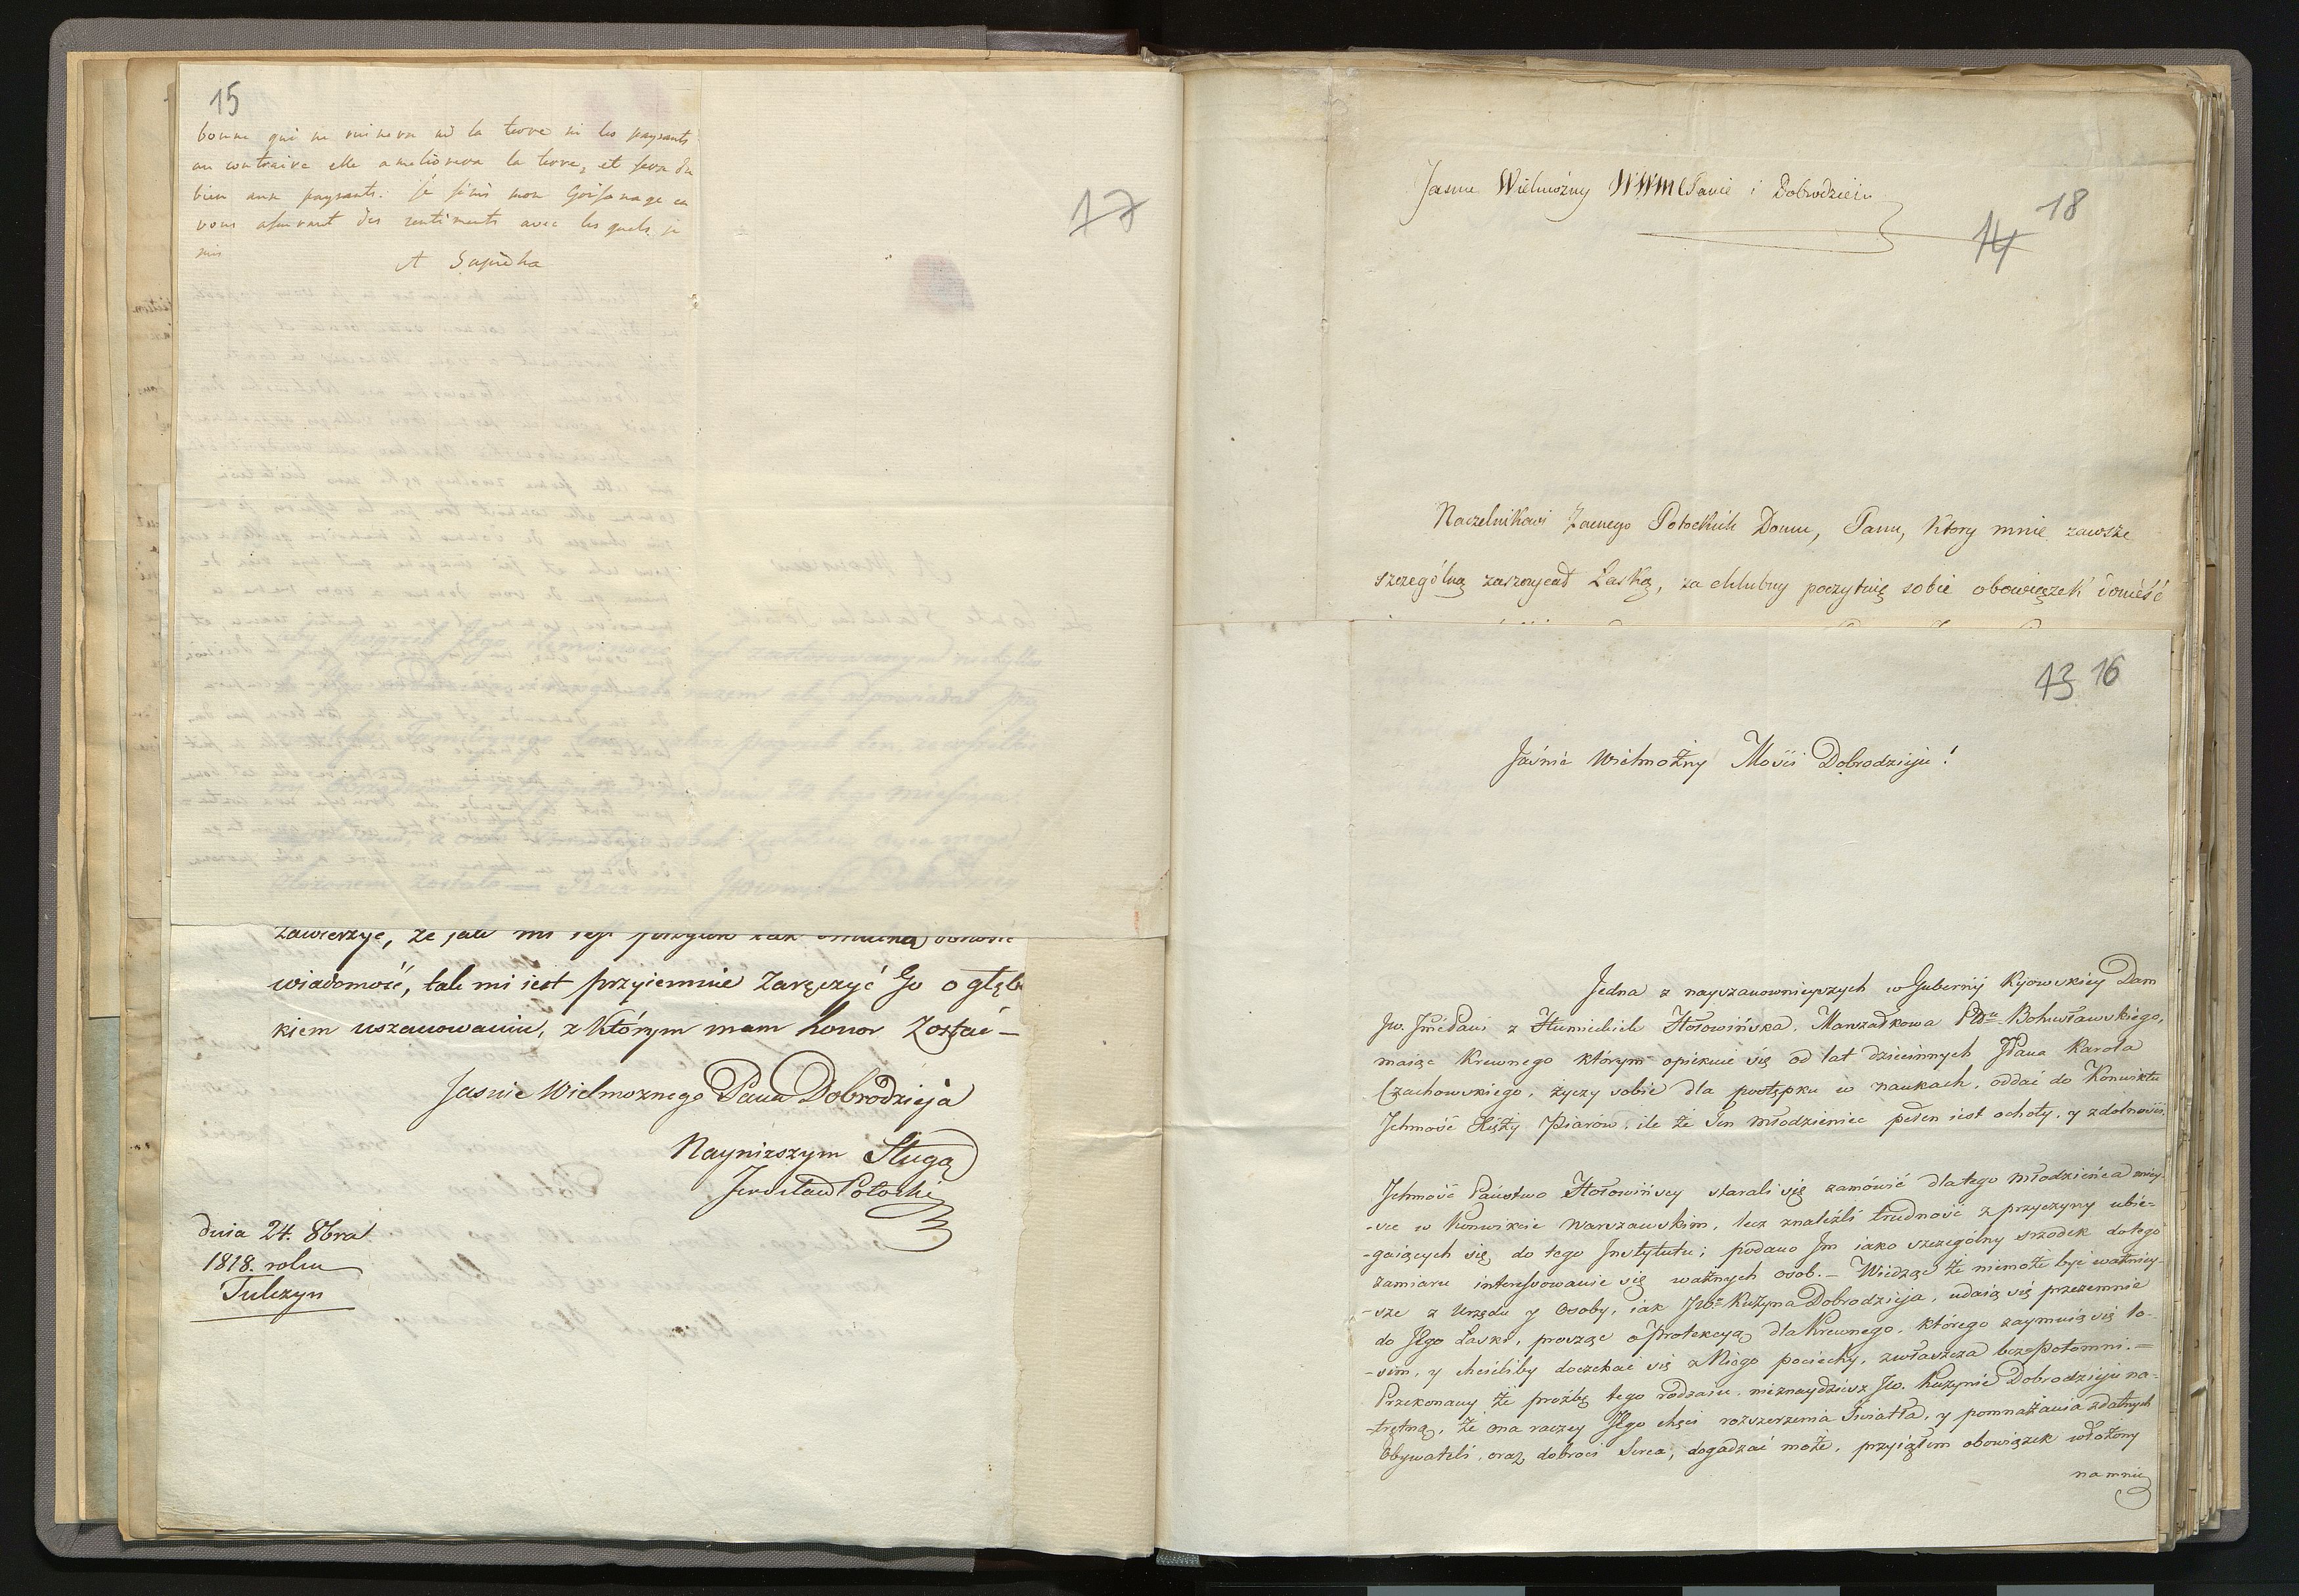 15
bonne qui ne ruinera ni la terre ni les paysants
au contraire elle ameliorera la terre, et fera du
bien aux paysants. je finis mon Grifonage en
vous assurant des sentiments avec les quels je
suis
A Sapieha
17
wiadomość, tak mi iest przyiemnie Zaręczyć Go o głębo
kiem uszanowaniu, z którym mam honor Zostać –
Jasnie Wielmoznego Pana Dobrodzieja
Naynizszym Sługą
Jarosław Potocki
dnia 24. 8bra
1818. roku
Tulczyn
Jasnie Wielmożny WWMC Panie i Dobrodzieiu
14 18
Naczelnikowi Zacnego Potockich Domu, Panu, Ktory mnie zawsze
szczególną zaszczycał Łaską, za chlubny poczytuię sobie obowiązek donieść
13 16
Jaśnie Wielmożny Mosci Dobrodzieju!
Jedna z nayszanownieyszych w Gubernij Kijowskiey Dam
Jw. Jmć Pani z Hołowińska, Marszałkowa Ptu Bohusławskiego,
maiąc Krewnego którym opiekuie się od lat dziecinnych JPana Karola
Czachowskiego, życzy sobie dla postępku w naukach, oddać do Konwiktu
Ichmość Xięży Piarów, ile że ten młodzieniec pełen iest ochoty, y zdolności.
Ichmość Państwo Hołowińscy starali się zamówić dla tego młodzieńca miey-
-sce w Konwikcie Warszawskim, lecz znaleźli trudność z przyczyny ubie-
-gaiących się do tego Instytutu; podano Im iako szczególny srzodek do tego
zamiaru interessowanie się ważnych osob. – Wiedząc że niemoże być ważniey-
-sze z Urzędu y Osoby, iak JWo Kuzyna Dobrodzieja, udaią się przezemnie
do JEgo Łaski, prosząc o Protekcyą dla Krewnego, którego zaymuią się lo-
-sem, y chcieliby doczekać się z Niego pociechy, zwłaszcza bezpotomni. =
Przekonany że proźbę tego rodzaiu, nieznaydziesz Jw. Kuzynie Dobrodzieju na-
-trętną, że ona raczey JEgo chęci rozszerzenia Światła, y pomnażania zdatnych
Obywateli, oraz dobroci Serca, dogadzać może, przyiąłem obowiązek włożony
na mnie